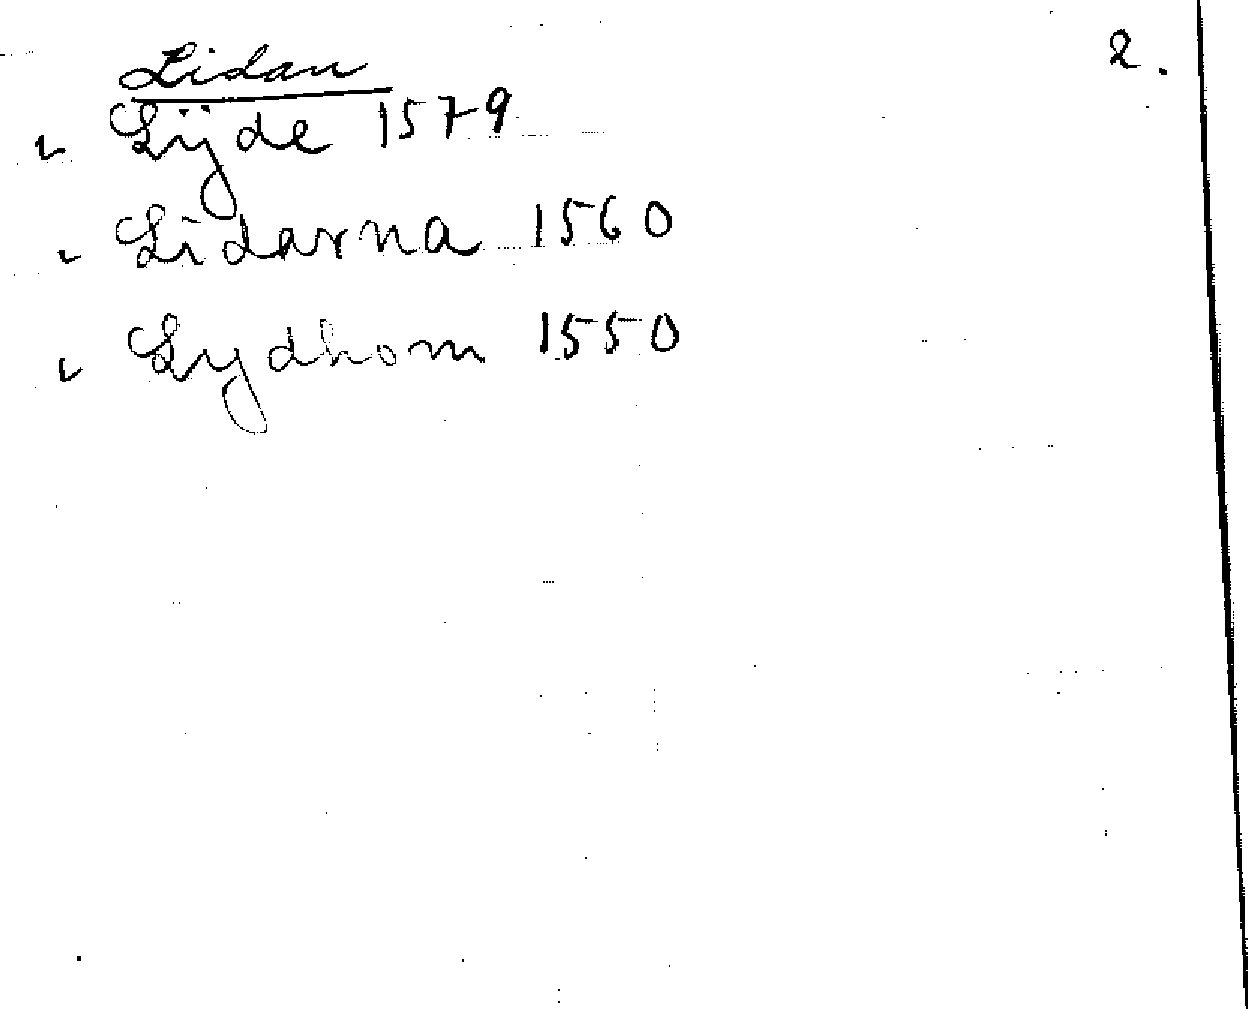 2.
Lidan
Lijde 1579
Lidarna 1560
Lydhom 1550